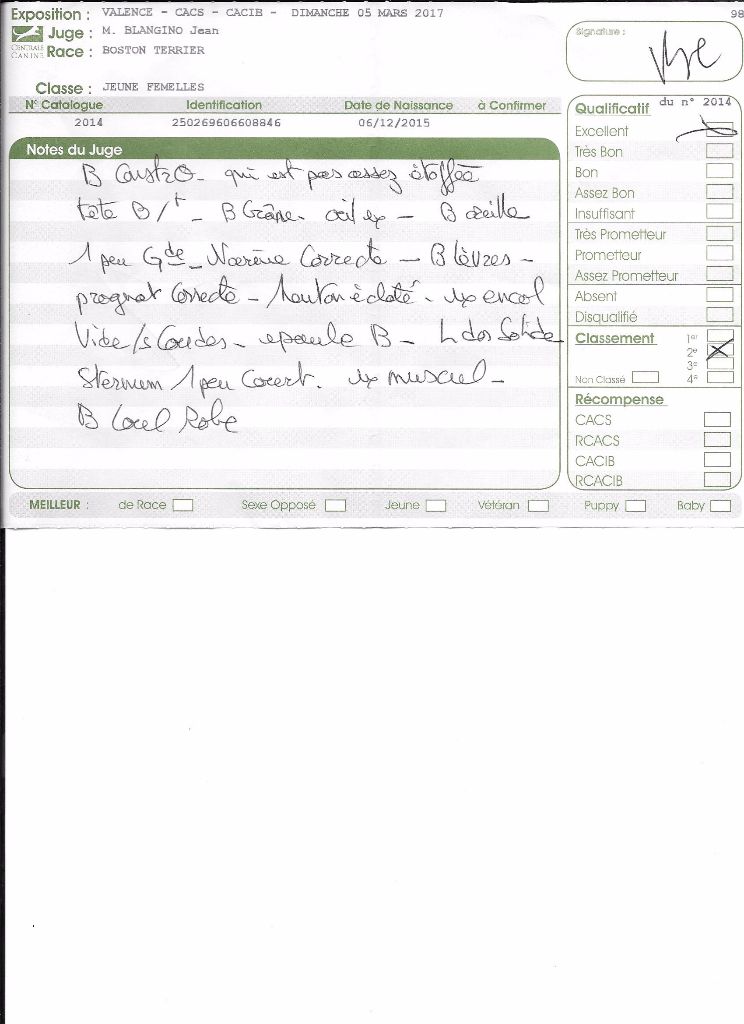 Exposition : VALENCE - CACS - CACIB - DIMANCHE 05 MARS 2017
98
CENTRALE CANINE
Juge : M. BLANGINO Jean
Race : BOSTON TERRIER
Signature :
Classe : JEUNE FEMELLES
N° Catalogue Identification Date de Naissance à Confirmer
2014 250269606608846 06/12/2015
Notes du Juge
B Constro - qui est pas assez étoffée
tete B/t - B Crâne - oeil ex - B oreille
1 peu Gde - Narine Correcte - B lèvres -
prognat Correcte - éclaté - encol
Vide /s Coudes - epaule B - L dos Solide
Sternum 1 peu Court. muscul -
B Coul Robe
Qualificatif du n° 2014
Excellent
Très Bon
Bon
Assez Bon
Insuffisant
Très Prometteur
Prometteur
Assez Prometteur
Absent
Disqualifié
Classement 1er
2e X
3e
Non Classé 4e
Récompense
CACS
RCACS
CACIB
RCACIB
MEILLEUR : de Race Sexe Opposé Jeune Vétéran Puppy Baby